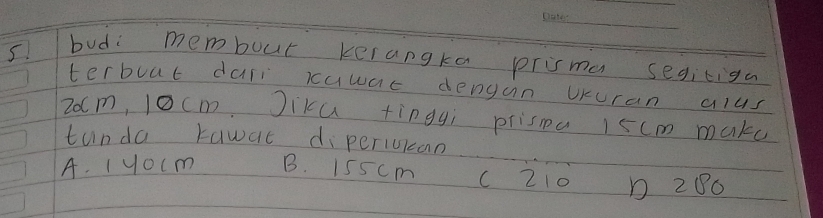 Date:
5. budi membuat kerangka prisma segitiga
terbuat dari kawat dengan ukuran alas
20cm, 10cm. Jika tinggi prisma 15cm maka
tanda kawat diperlukan
A. 140cm B. 155cm C 210 D 280